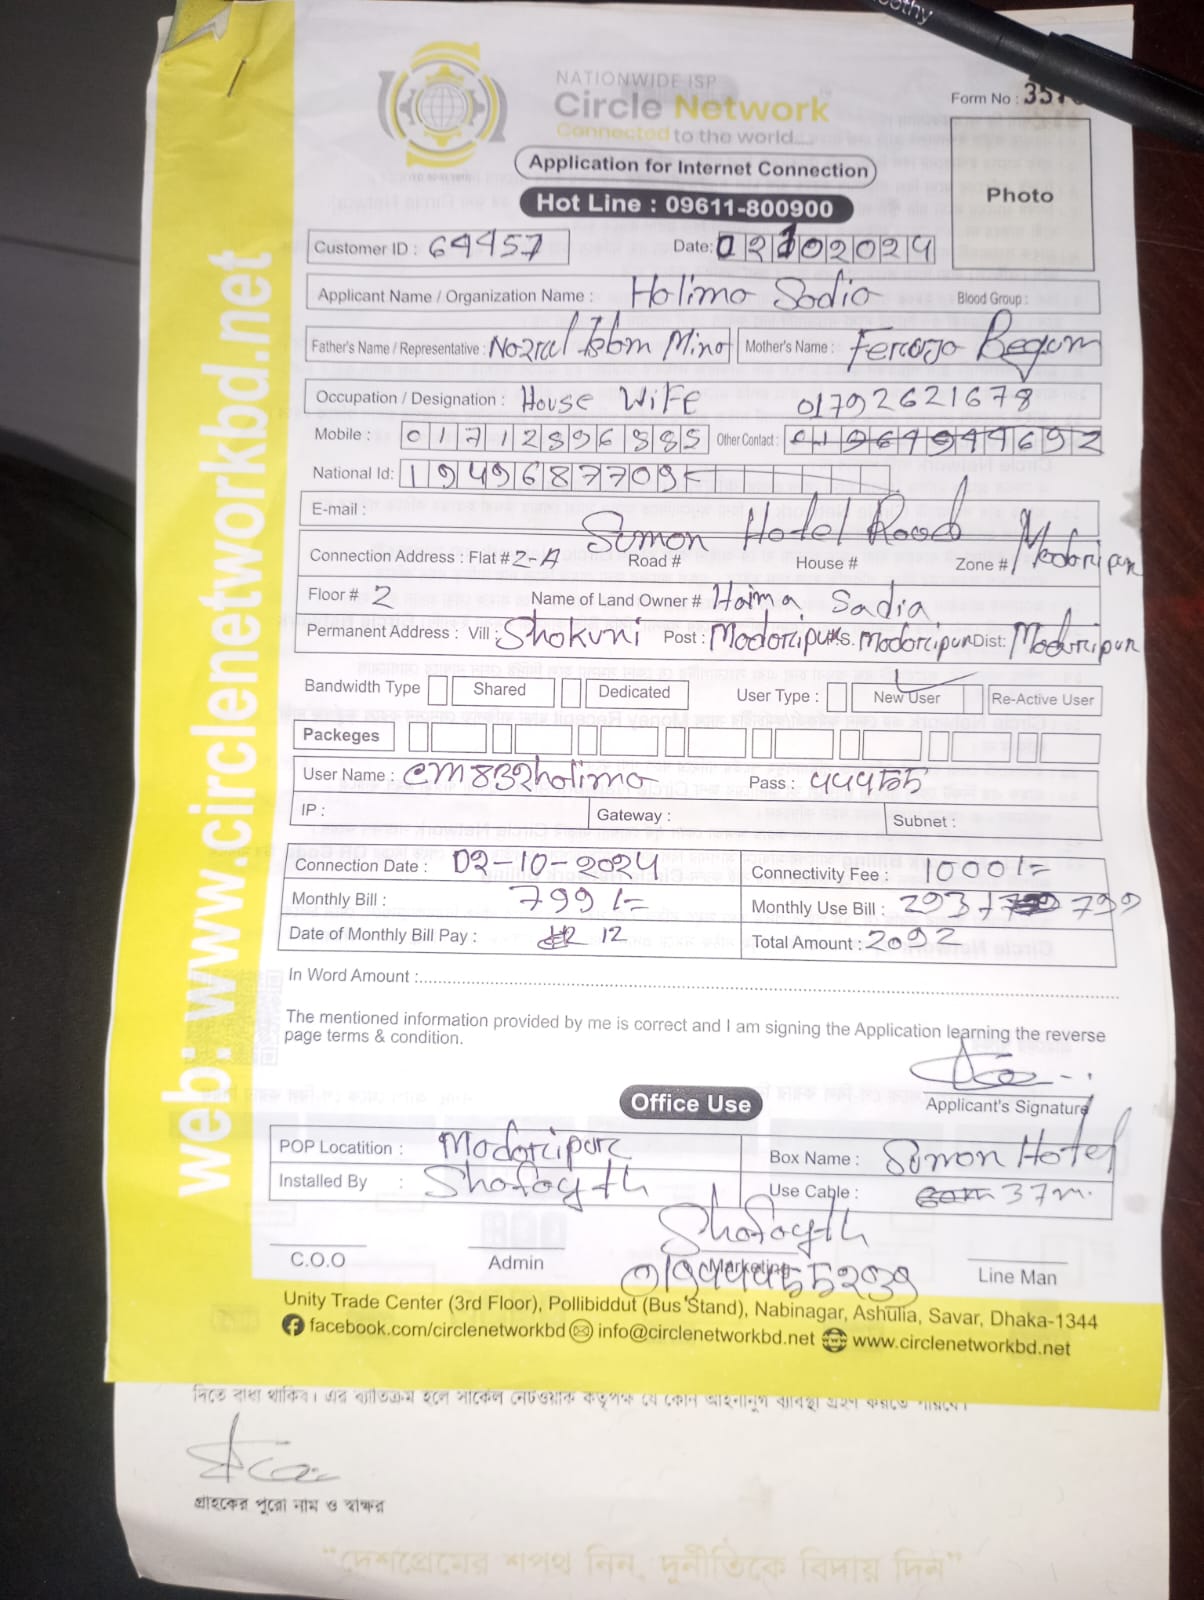 oothy
NATIONWIDE ISP
Circle Network
Connected to the world....
Form No : 357
Application for Internet Connection
Hot Line : 09611-800900
Photo
Customer ID : 64457 Date: 02102024
Applicant Name / Organization Name : Holima Sadia Blood Group :
Father's Name / Representative : Nozrul Islam Mina Mother's Name : Feroza Begum
Occupation / Designation : House Wife 01792621678
Mobile : 01712896885 Other Contact :
National Id: 1949687709
E-mail :
Sumon Hotel Road Madaripur
Connection Address : Flat # 2-A Road # House # Zone #
Floor # 2 Name of Land Owner # Haima Sadia
Permanent Address : Vill : Shokuni Post : Madaripur P.S. Madaripur Dist: Madaripur
Bandwidth Type Shared Dedicated User Type : New User Re-Active User
Packeges
User Name : cm832holima Pass : 444555
IP : Gateway : Subnet :
Connection Date : 02-10-2024 Connectivity Fee : 1000/=
Monthly Bill : 799/= Monthly Use Bill : 293+ 799
Date of Monthly Bill Pay : 12 Total Amount : 2092
In Word Amount :
The mentioned information provided by me is correct and I am signing the Application learning the reverse
page terms & condition.
Applicant's Signature
Office Use
POP Locatition : Madaripur Box Name : Sumon Hotel
Installed By : Shafayth Use Cable : 37m.
Shafayth
C.O.O Admin Marketing Line Man
01944455239
Unity Trade Center (3rd Floor), Pollibiddut (Bus Stand), Nabinagar, Ashulia, Savar, Dhaka-1344
facebook.com/circlenetworkbd info@circlenetworkbd.net www.circlenetworkbd.net
web: www.circlenetworkbd.net
দিতে বাধ্য থাকিব। এর ব্যতিক্রম হলে সার্কেল নেটওয়ার্ক কর্তৃপক্ষ যে কোন আইনানুগ ব্যবস্থা গ্রহণ করতে পারবে।
গ্রাহকের পুরো নাম ও স্বাক্ষর
“দেশপ্রেমের শপথ নিন, দুর্নীতিকে বিদায় দিন”